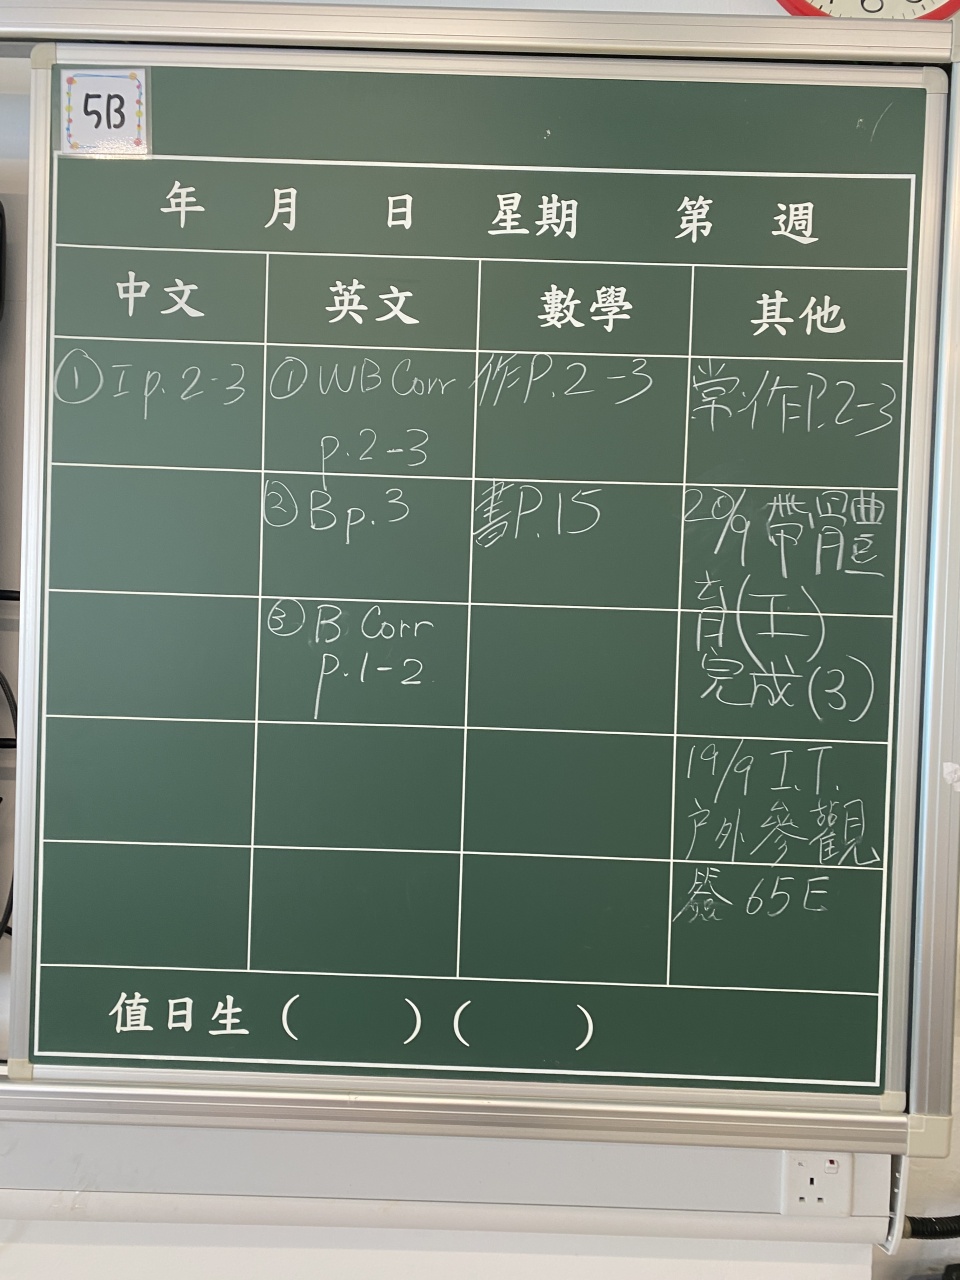 5B
年 月 日 星期 第 週
中文 英文 數學 其他
① I p.2-3
① WB Corr
p.2-3
② B p.3
③ B Corr
p.1-2
作P.2-3
書P.15
常作P.2-3
20/9 帶體
育(工)
完成(3)
19/9 I.T.
戶外參觀
簽 65E
值日生 ( ) ( )